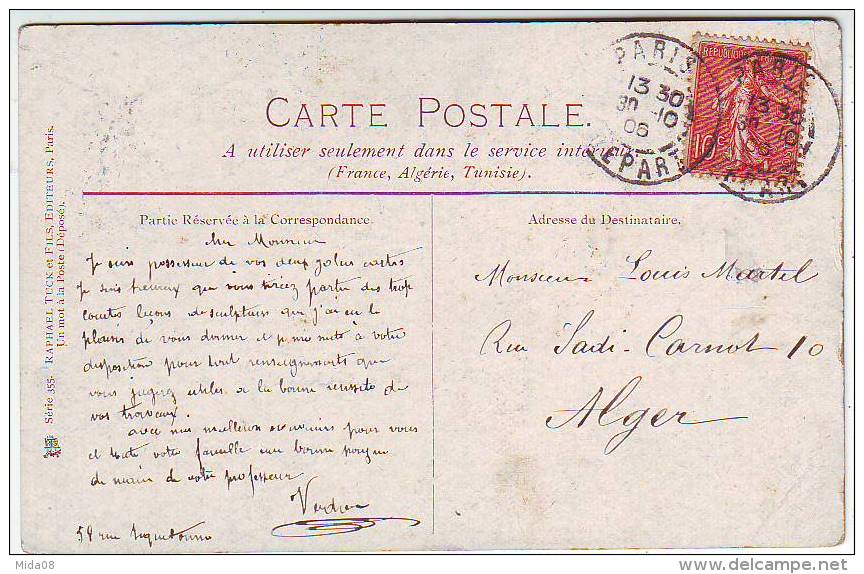 CARTE POSTALE.
A utiliser seulement dans le service intérieur
(France, Algérie, Tunisie).
RÉPUBLIQUE
10c
PARIS
13 30
30 -10
06
DEPART
PARIS
13 30
30 -10
06
DEPART
Série 355. RAPHAEL TUCK et FILS, EDITEURS, Paris.
Un mot à la Poste (Déposé).
Partie Réservée à la Correspondance.
Cher Monsieur
Je suis possesseur de vos deux jolies cartes
Je suis heureux que vous tiriez partie des trop
courtes leçons de sculpture que j'ai eu le
plaisir de vous donner et je me mets à votre
disposition pour tout renseignements que
vous jugerez utiles à la bonne réussite de
vos travaux.
avec mes meilleurs souvenirs pour vous
et toute votre famille une bonne poignée
de main de votre professeur
Verdier
54 rue
Adresse du Destinataire.
Monsieur Louis Martel
Rue Sadi-Carnot 10
Alger
Mida08
delcampe.net